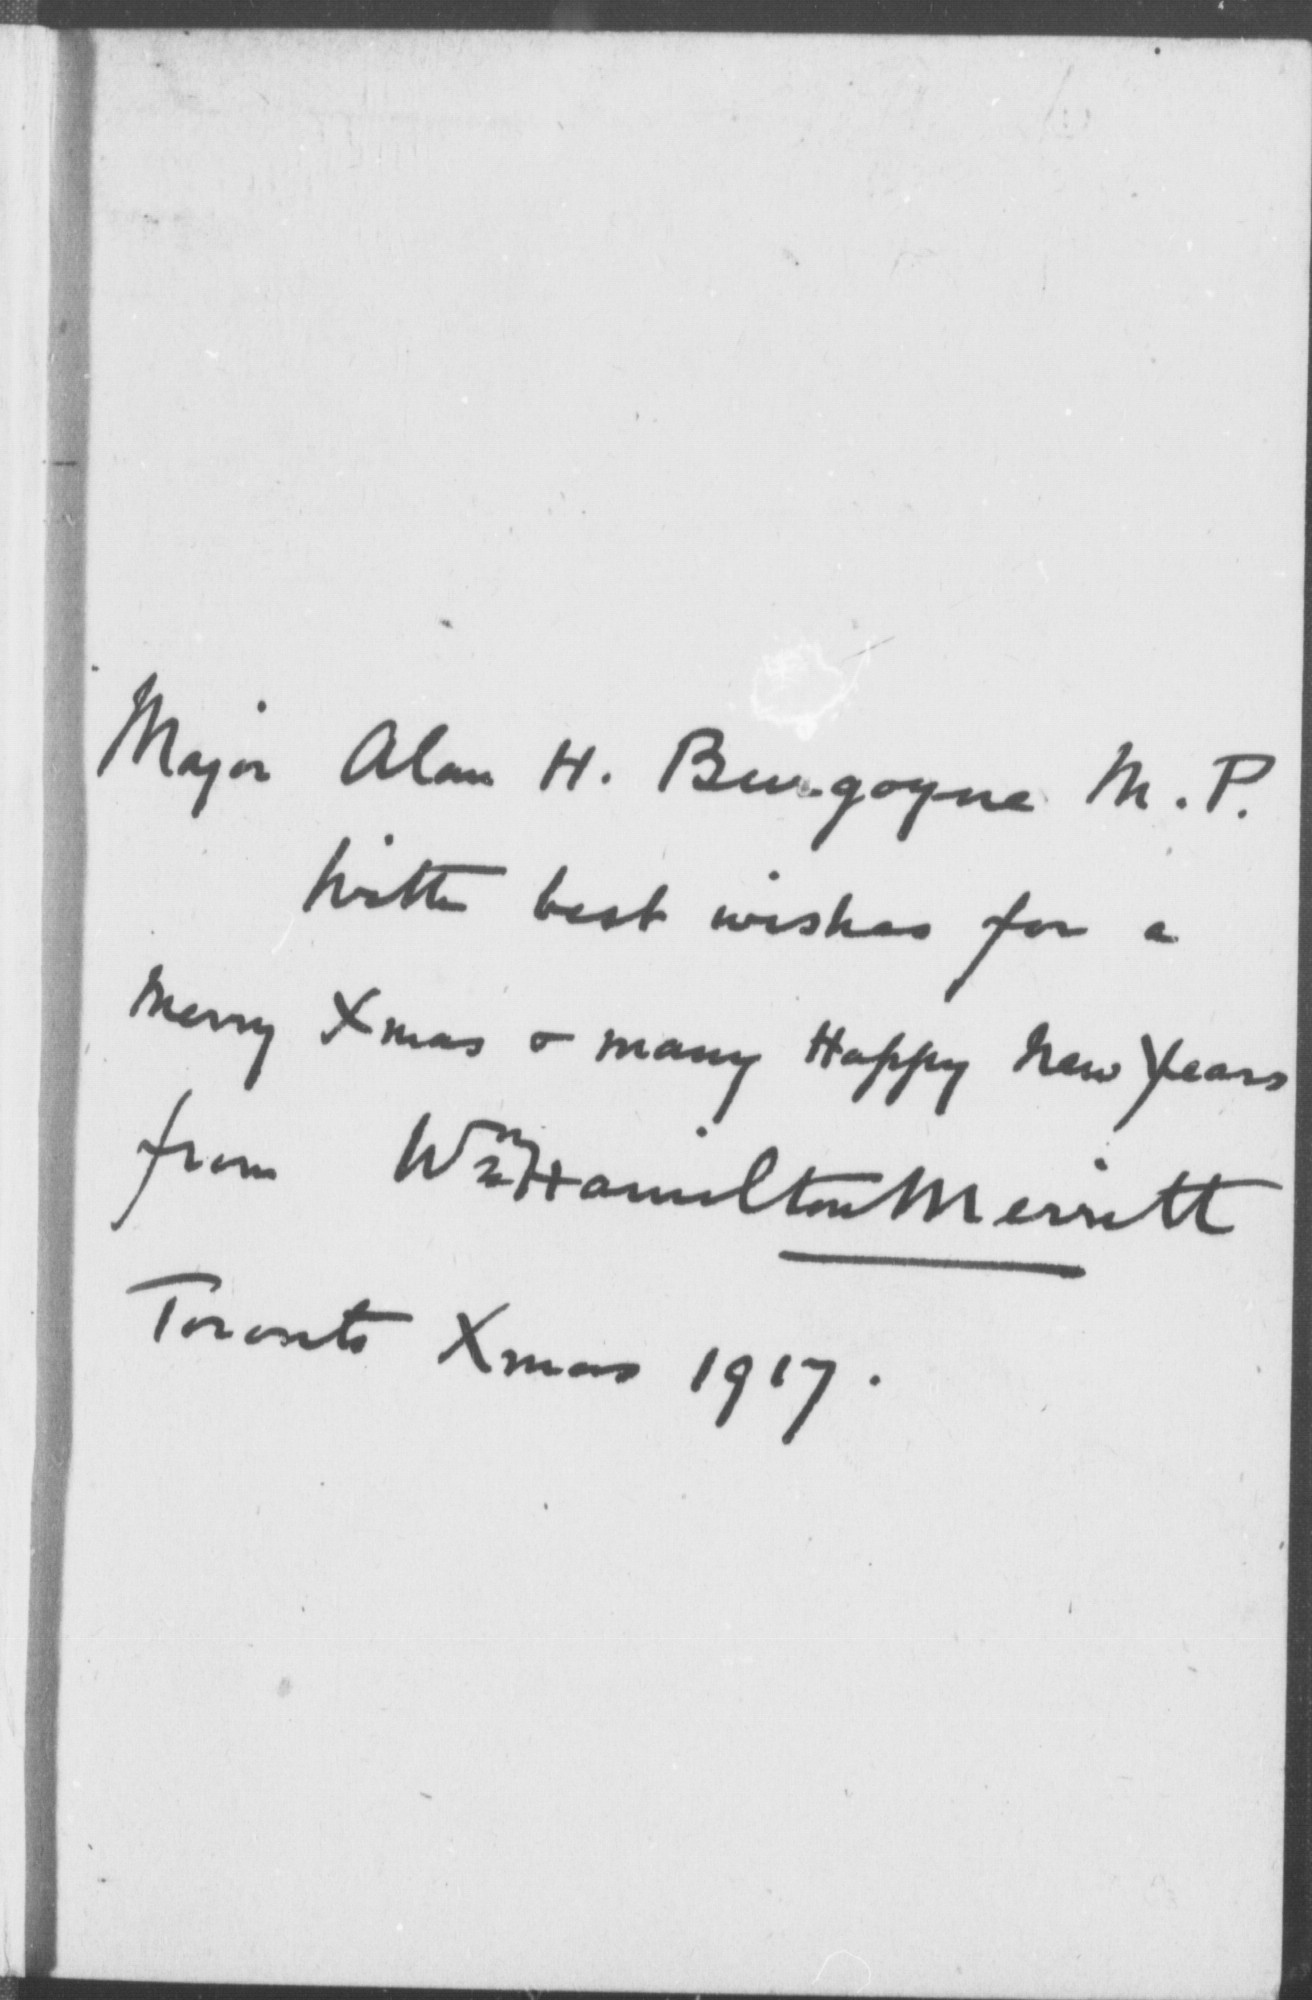 Major Alan H. Burgoyne M.P.
With best wishes for a
Merry Xmas & many Happy New Years
from Wm Hamilton Merritt
Toronto Xmas 1917.